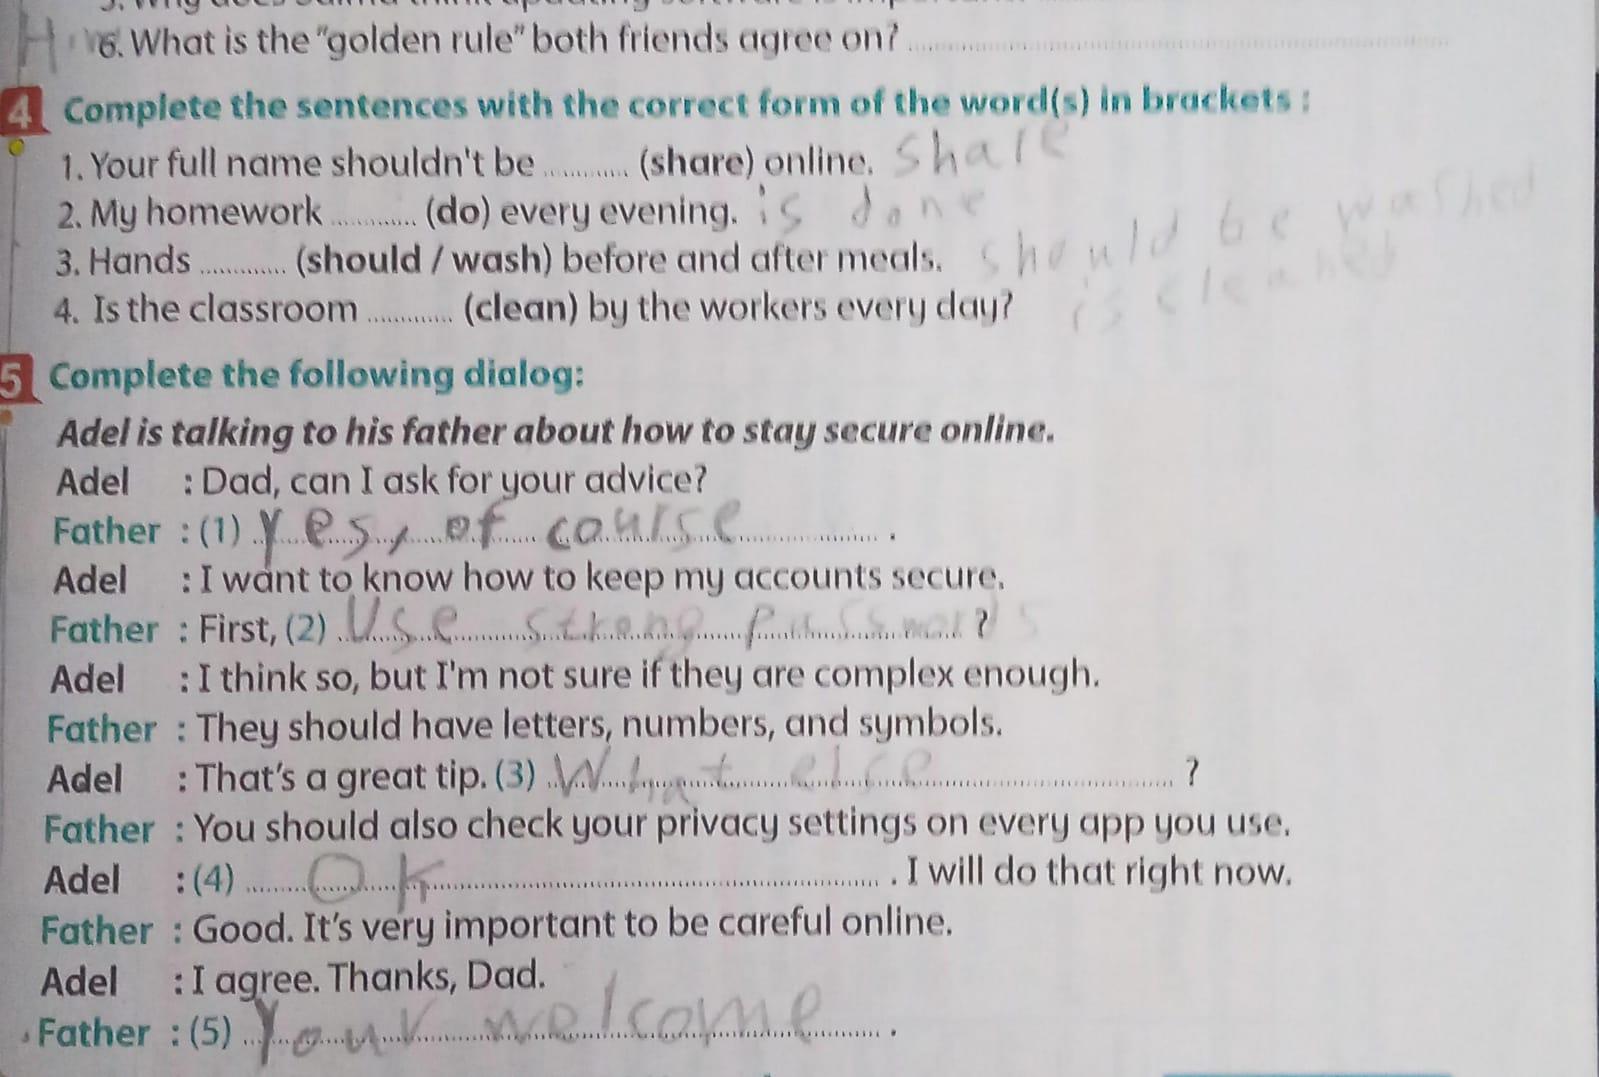 6. What is the "golden rule" both friends agree on?
4 Complete the sentences with the correct form of the word(s) in brackets :
1. Your full name shouldn't be ............ (share) online. share
2. My homework ............ (do) every evening. is done
3. Hands ............ (should / wash) before and after meals. should be washed
4. Is the classroom ............ (clean) by the workers every day? is cleaned
5 Complete the following dialog:
Adel is talking to his father about how to stay secure online.
Adel : Dad, can I ask for your advice?
Father : (1) Yes, of course .
Adel : I want to know how to keep my accounts secure.
Father : First, (2) Use strong passwords ?
Adel : I think so, but I'm not sure if they are complex enough.
Father : They should have letters, numbers, and symbols.
Adel : That's a great tip. (3) What else ?
Father : You should also check your privacy settings on every app you use.
Adel : (4) OK . I will do that right now.
Father : Good. It's very important to be careful online.
Adel : I agree. Thanks, Dad.
Father : (5) Your welcome .